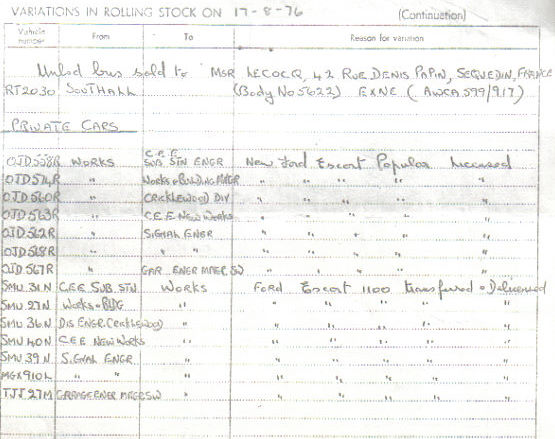 VARIATIONS IN ROLLING STOCK ON 17-8-76 (Continuation)
Vehicle number From To Reason for variation
Unlicd bus sold to MSR LECOCQ, 42 RUE DENIS PAPIN, SEQUEDIN, FRANCE
RT2030 SOUTHALL (Body No 5622) EXNC (AWCA 599/917)
PRIVATE CARS
C.E.E
OJD558R WORKS SUB. STN ENGR New Ford Escort Popular licensed
OJD574R " WORKS & BUILDING MNGR " " " " "
OJD560R " CRICKLEWOOD DIV " " " " "
OJD563R " C.E.E NEW WORKS " " " " "
OJD562R " SIGNAL ENGR " " " " "
OJD568R " " " " " " " "
OJD567R " GAR. ENGR MNGR SW " " " " "
SMU 31N C.E.E SUB. STN WORKS FORD Escort 1100 transferred & Delicenced
SMU 27N WORKS & BLDG " " " " " "
SMU 36N DIS ENGR. CRICKLEWOOD " " " " " "
SMU 40N C.E.E NEW WORKS " " " " " "
SMU 39N SIGNAL ENGR. " " " " " "
MGX910L " " " " " " " "
TJJ 27M GARAGE ENGR MNGR SW " " " " " "